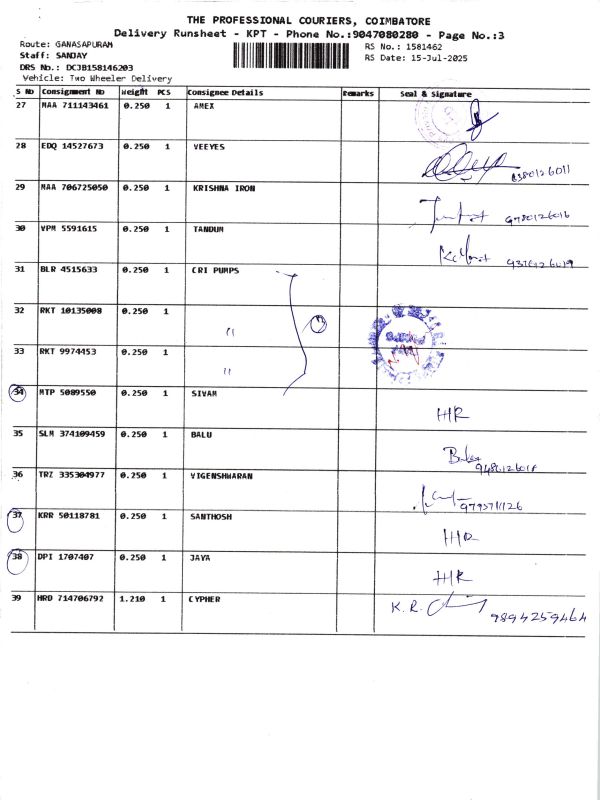 THE PROFESSIONAL COURIERS, COIMBATORE
Delivery Runsheet - KPT - Phone No.:9047080280 - Page No.:3
Route: GANASAPURAM
RS No.: 1581462
Staff: SANJAY
RS Date: 15-Jul-2025
DRS No.: DCJB158146203
Vehicle: Two Wheeler Delivery
S No Consignment No Weight PCS Consignee Details Remarks Seal & Signature
27 MAA 711143461 0.250 1 AMEX
28 EDQ 14527673 0.250 1 VEEYES
29 MAA 706725050 0.250 1 KRISHNA IRON
30 VPM 5591615 0.250 1 TANDUM
31 BLR 4515633 0.250 1 CRI PUMPS
32 RKT 10135008 0.250 1 "
33 RKT 9974453 0.250 1 "
34 MTP 5089550 0.250 1 SIVAM HR
35 SLM 374109459 0.250 1 BALU
36 TRZ 335304977 0.250 1 VIGENSHWARAN
37 KRR 50118781 0.250 1 SANTHOSH HR
38 DPI 1707407 0.250 1 JAYA HR
39 HRD 714706792 1.210 1 CYPHER K. R. 9894259464